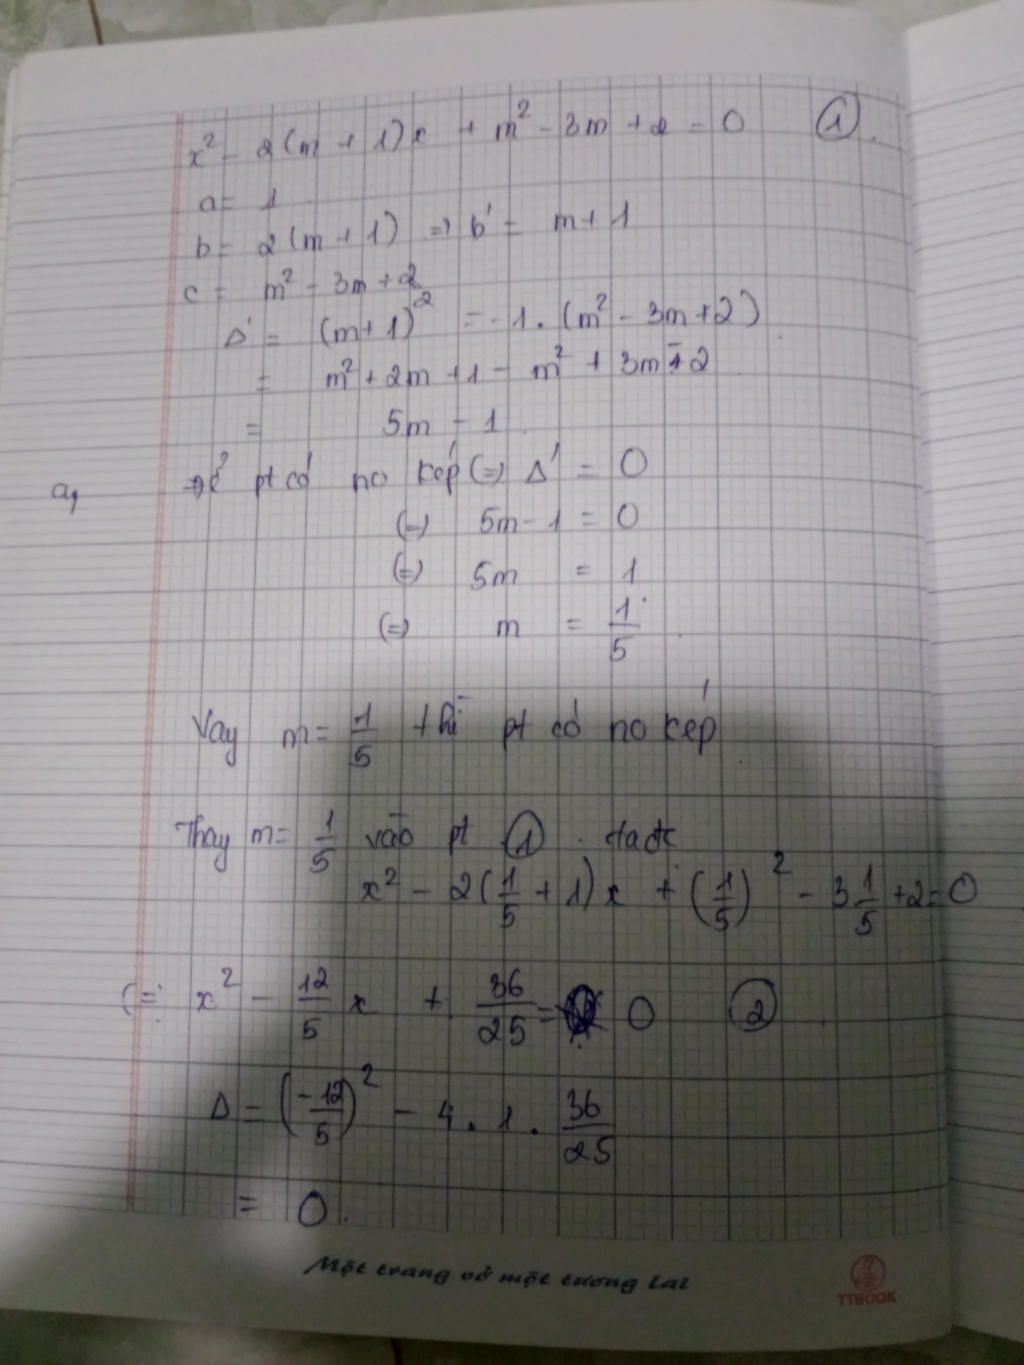 x² - 2(m + 1)x + m² - 3m + 2 = 0 ①.
a = 1
b = 2(m + 1) => b' = m + 1
c = m² - 3m + 2
Δ' = (m+1)² = - 1. (m² - 3m + 2)
= m² + 2m + 1 - m² + 3m - 2
= 5m - 1
a, Để pt có no kép (=) Δ' = 0
(=) 5m - 1 = 0
(=) 5m = 1
(=) m = 1/5
Vay m = 1/5 thì pt có no kép
Thay m = 1/5 vào pt ① . ta đc
x² - 2(1/5 + 1)x + (1/5)² - 3 1/5 + 2 = 0
(=) x² - 12/5 x + 36/25 = 0 ②
Δ = (-12/5)² - 4 . 1 . 36/25
= 0.
Một trang vở một tương lai
TTBOOK